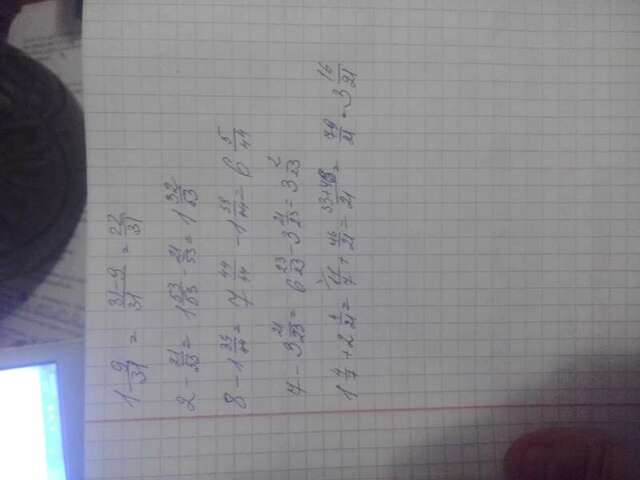 1 - 9/31 = 31-9/31 = 22/31
2 - 21/53 = 1 53/53 - 21/53 = 1 32/53
8 - 1 39/44 = 7 44/44 - 1 39/44 = 6 5/44
7 - 3 21/23 = 6 23/23 - 3 21/23 = 3 2/23
1 4/7 + 2 4/21 = 11/7 + 46/21 = 33+46/21 = 79/21 = 3 16/21